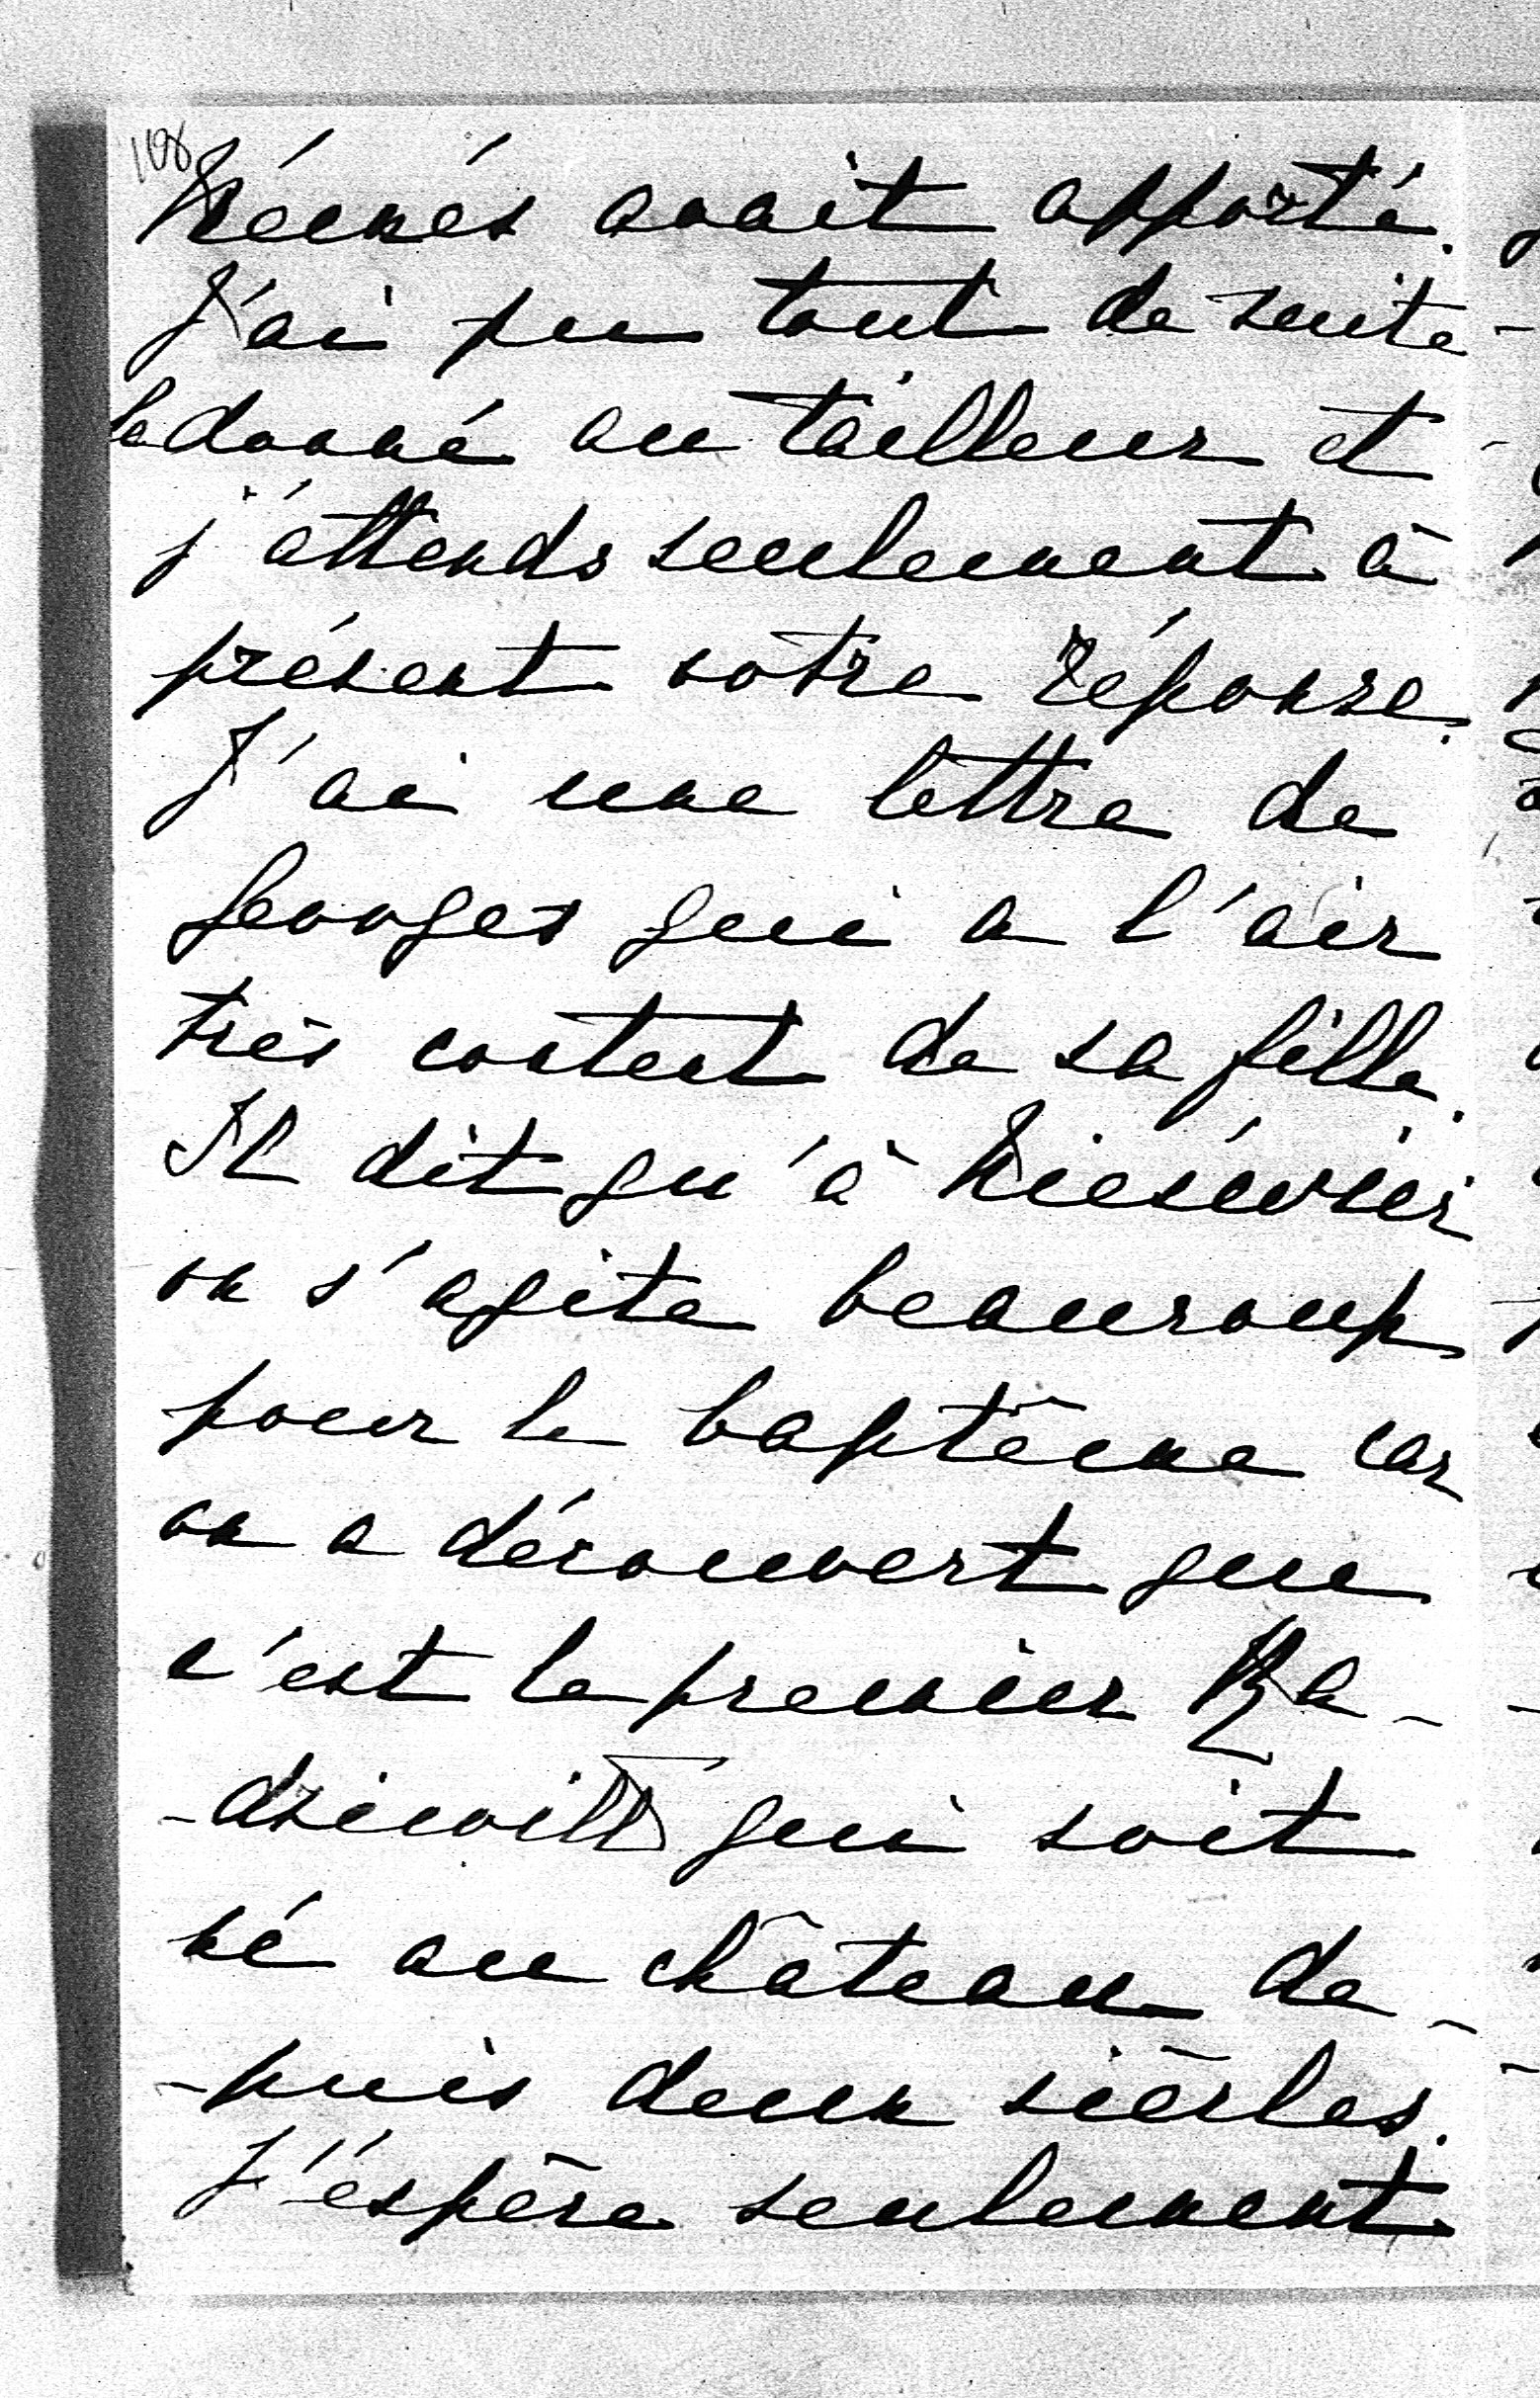 108
avait apporté.
J'ai pu tout de suite
le donné au tailleur et
j'attends seulement à
présent votre réponse.
J'ai une lettre de
Georges qui a l'air
très content de sa fille.
Il dit qu'à Niéswier
on s'agite beaucoup
pour le baptême car
on a découvert que
c'est le premier Ra-
-dziwill qui soit
né au château de-
-puis deux siècles.
J'éspère seulement